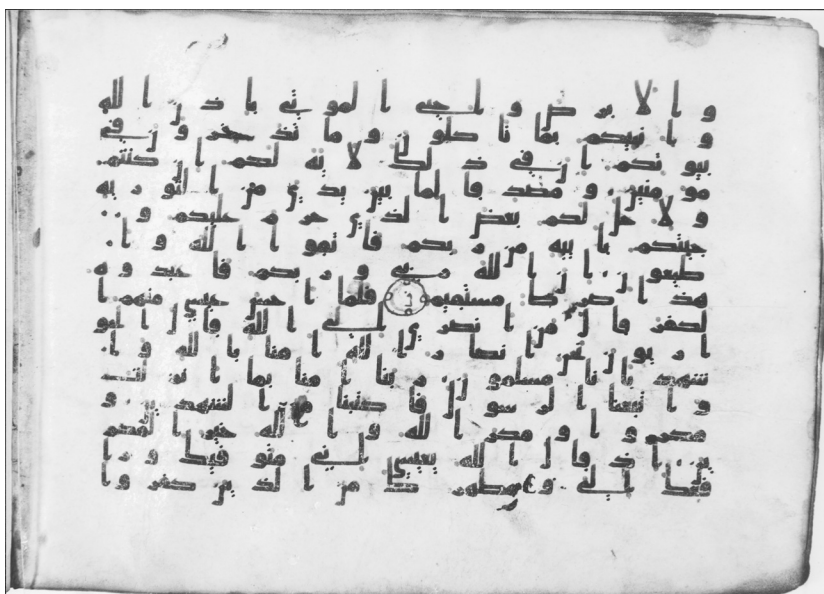 و الابرص و احيي الموتى باذن الله
و انبيكم بما تاكلون و ما تدخرون في
بيوتكم ان في ذلك لاية لكم ان كنتم
مومنين و مصدقا لما بين يدي من التورية
و لاحل لكم بعض الذي حرم عليكم و
جيتكم باية من ربكم فاتقوا الله و ا
طيعون ان الله ربي و ربكم فاعبدوه
هذا صرط مستقيم فلما احس عيسى منهم ا
لكفر قال من انصري الى الله قال الحو
اريون نحن انصار الله امنا بالله و ا
شهد بانا مسلمون ربنا امنا بما انزلت
و اتبعنا الرسول فاكتبنا مع الشهدين و
مكروا و مكر الله و الله خير المكر
ين اذ قال الله يعيسى اني متوفيك و را
فعك الي و مطهرك من الذين كفروا